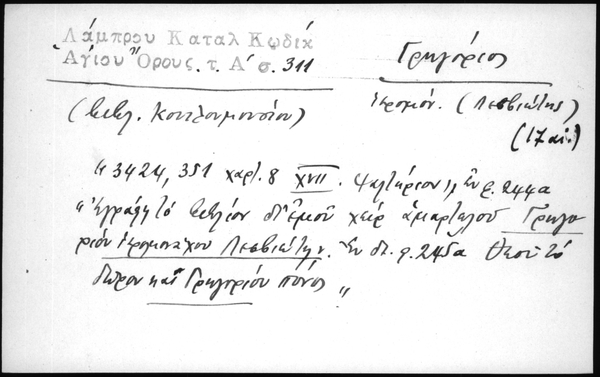 Λάμπρου Καταλ Κωδίκ
Ἁγίου Ὄρους. τ. Α´ σ. 311
Γρηγόριος
(Βιβλ. Κουτλουμουσίου)
ἱερομόν. (Λεσβιώτης)
(17 αἰ.)
" 3424, 351 χαρτ. 8 XVII. Ψαλτήριον ,, ἐν φ. 244α
" Ἐγράφη τὸ βιβλίον δι' ἐμοῦ χειρ ἁμαρτωλοῦ Γρηγο
ρίου ἱερομονάχου Λεσβιώτην. Ἐν δὲ φ. 245α Θεοῦ τὸ
δῶρον καὶ Γρηγορίου πόνος "